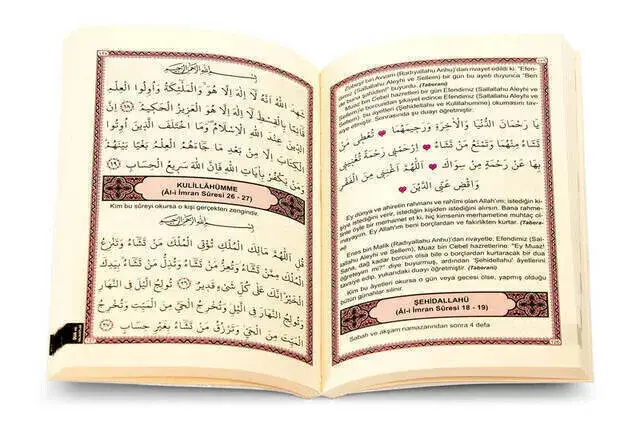 بِسْمِ اللّٰهِ الرَّحْمٰنِ الرَّحِيمِ
شَهِدَ اللّٰهُ اَنَّهُ لَا اِلٰهَ اِلَّا هُوَ وَالْمَلٰٓئِكَةُ وَاُولُوا الْعِلْمِ
قَٓائِمًا بِالْقِسْطِ لَٓا اِلٰهَ اِلَّا هُوَ الْعَزِيزُ الْحَكِيمُ ﴿١٨﴾ اِنَّ
الدِّينَ عِنْدَ اللّٰهِ الْاِسْلَامُ وَمَا اخْتَلَفَ الَّذِينَ اُوتُوا
الْكِتَابَ اِلَّا مِنْ بَعْدِ مَا جَٓاءَهُمُ الْعِلْمُ بَغْيًا بَيْنَهُمْ
وَمَنْ يَكْفُرْ بِاٰيَاتِ اللّٰهِ فَاِنَّ اللّٰهَ سَرِيعُ الْحِسَابِ ﴿١٩﴾
KULİLLÂHÜMME
(Âl-i İmran Sûresi 26 - 27)
Kim bu sûreyi okursa o kişi gerçekten zengindir.
بِسْمِ اللّٰهِ الرَّحْمٰنِ الرَّحِيمِ
قُلِ اللّٰهُمَّ مَالِكَ الْمُلْكِ تُؤْتِي الْمُلْكَ مَنْ تَشَٓاءُ وَتَنْزِعُ
الْمُلْكَ مِمَّنْ تَشَٓاءُ وَتُعِزُّ مَنْ تَشَٓاءُ وَتُذِلُّ مَنْ تَشَٓاءُ بِيَدِكَ
الْخَيْرُ اِنَّكَ عَلٰى كُلِّ شَيْءٍ قَدِيرٌ ﴿٢٦﴾ تُولِجُ الَّيْلَ فِي النَّهَارِ
وَتُولِجُ النَّهَارَ فِي الَّيْلِ وَتُخْرِجُ الْحَيَّ مِنَ الْمَيِّتِ وَتُخْرِجُ
الْمَيِّتَ مِنَ الْحَيِّ وَتَرْزُقُ مَنْ تَشَٓاءُ بِغَيْرِ حِسَابٍ ﴿٢٧﴾
Zübeyr bin Avvam (Radıyallahu Anhu)'dan rivayet edildi ki: "Efendimiz
(Sallallahu Aleyhi ve Sellem) bir gün bu ayeti duyunca "Ben
de buna şahidim!" buyurdu. (Taberani)
Muaz bin Cebel hazretleri bir gün Efendimiz (Sallallahu Aleyhi ve
Sellem)'e borcundan şikayet edince Efendimiz (Sallallahu Aleyhi ve
Sellem), bu ayetleri (Şehidallahü ve Kulillahumme) okumasını tav-
siye etmiştir. Sonrasında şu duayı öğretmiştir.
يَا رَحْمَانَ الدُّنْيَا وَالْاٰخِرَةِ وَرَحِيمَهُمَا ♥ تُعْطِي مَنْ
تَشَٓاءُ مِنْهُمَا وَتَمْنَعُ مَنْ تَشَٓاءُ ♥ اِرْحَمْنِي رَحْمَةً تُغْنِينِي
بِهَا عَنْ رَحْمَةِ مَنْ سِوَاكَ ♥ اَللّٰهُمَّ اَغْنِنِي مِنَ الْفَقْرِ
♥ وَاقْضِ عَنِّي الدَّيْنَ ♥
Ey dünya ve ahiretin rahmanı ve rahîmi olan Allah'ım; istediğin
kişiye istediğini verir, istediğin kişiden istediğini alırsın. Bana rahme-
tinle öyle bir merhamet et ki, hiç kimsenin merhametine muhtaç ol-
mayayım. Ey Allah'ım beni borçlardan ve fakirlikten kurtar. (Taberani)
Enes bin Malik (Radıyallahu Anhu)'dan rivayetle; Efendimiz (Sal-
lallahu Aleyhi ve Sellem), Muaz bin Cebel hazretlerine: "Ey Muaz!
Sana, dağ kadar borcun olsa bile o borçlardan kurtaracak bir dua
öğreteyim mi?" diye buyurmuş, ardından "Şehidellahu" âyetlerini
tavsiye edip, yukarıdaki duayı öğretmiştir. (Taberani)
Kim bu âyetleri okursa o gün veya gecesi ölse, yapmış olduğu
bütün günahlar silinir.
ŞEHİDALLAHÜ
(Âl-i İmran Sûresi 18 - 19)
Sabah ve akşam namazından sonra 4 defa